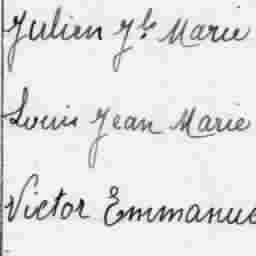 Julien Jh Marie
Louis Jean Marie
Victor Emmanue